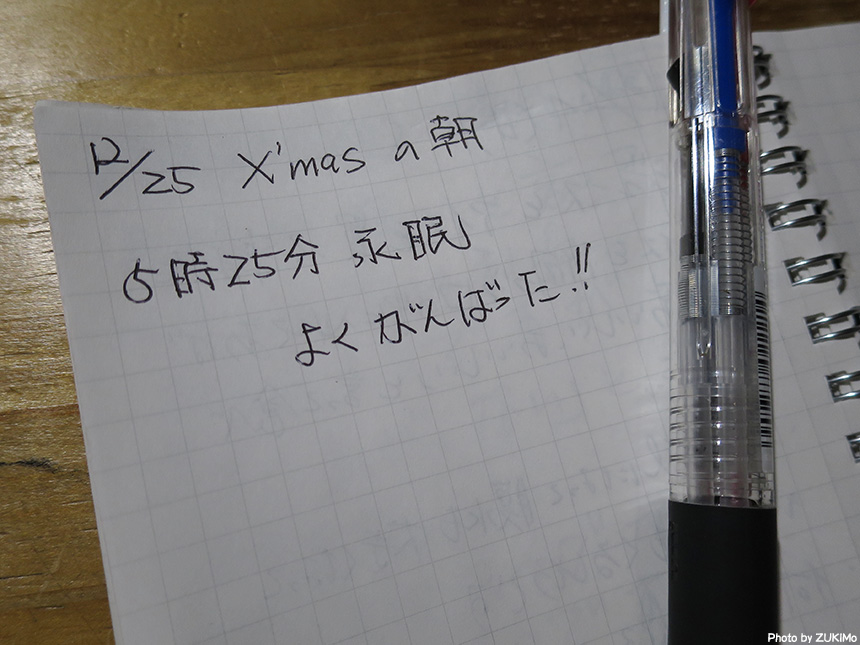 12/25 X'mas の朝
5時25分 永眠
よくがんばった!!
Photo by ZUKiMo